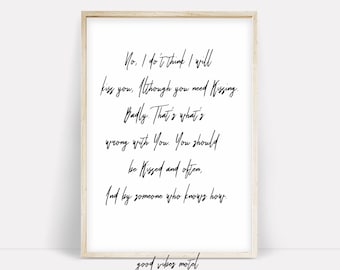 No, I do't think I will
kiss you, Although you need Kissing.
Badly. That's what's
wrong with You. You should
be Kissed and often,
And by someone who knows how.
good vibes motel